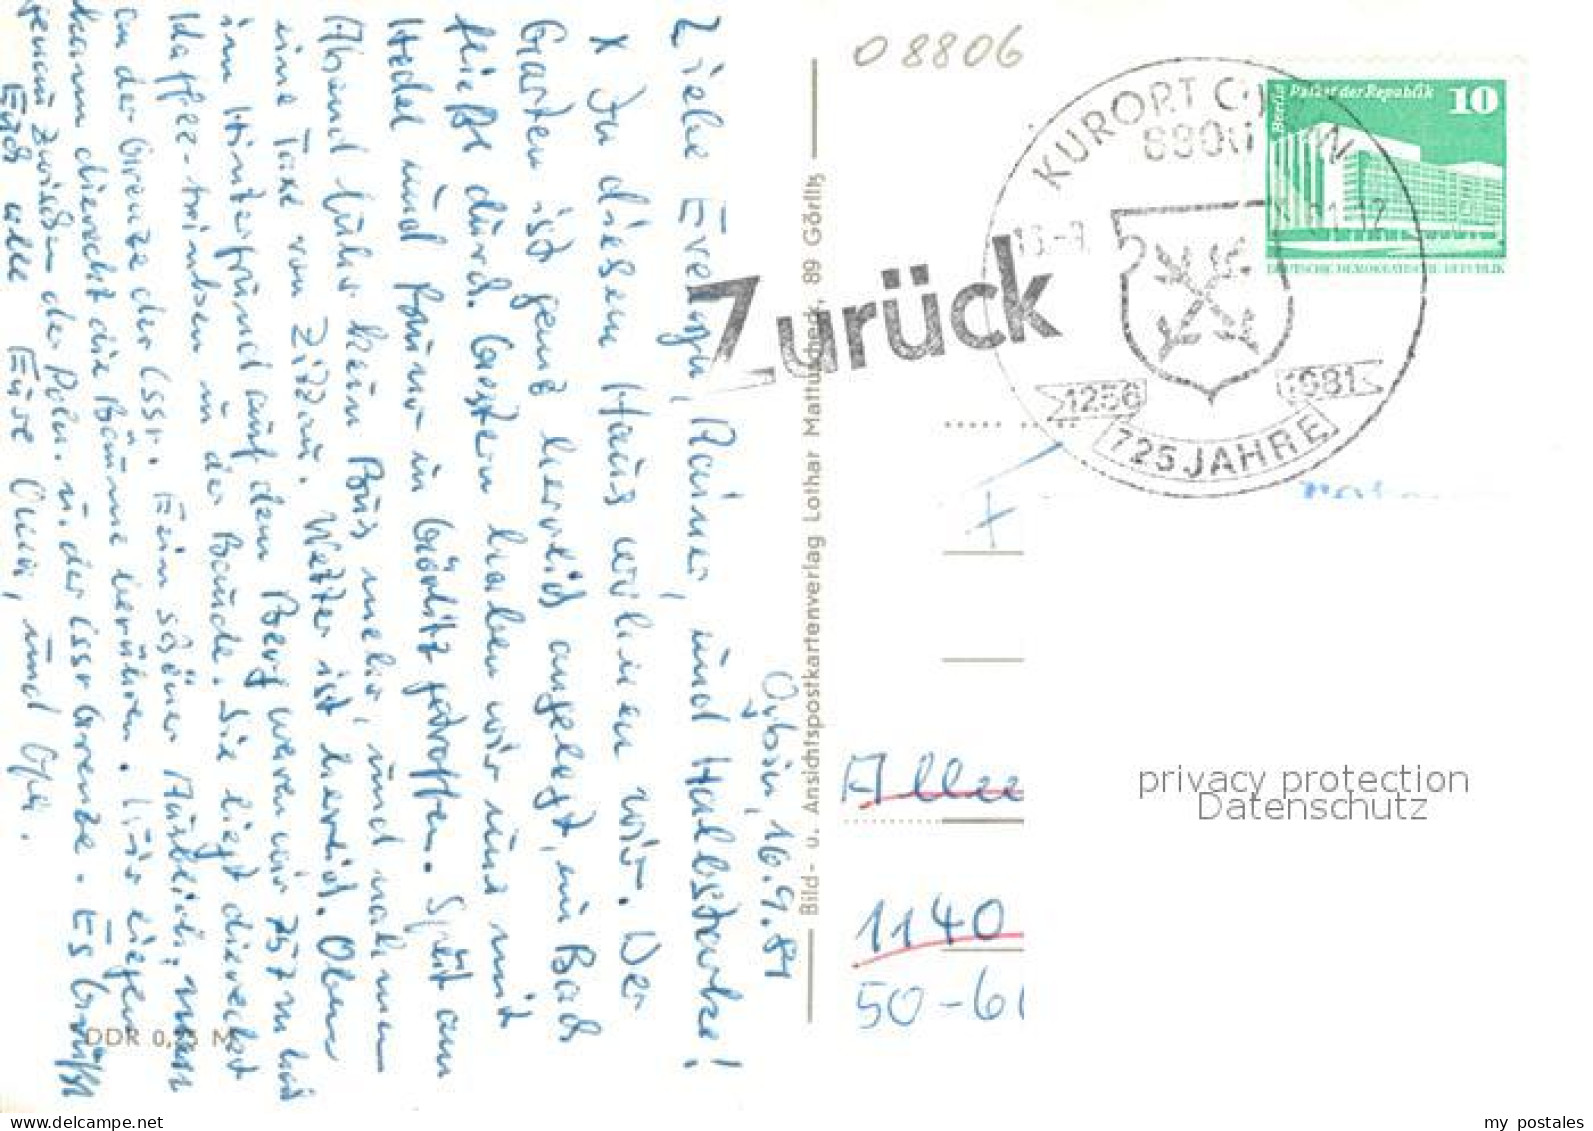 08806
KURORT OYBIN
8806
Berlin Palast der Republik 10
DEUTSCHE DEMOKRATISCHE REPUBLIK
1256 1981
725 JAHRE
Zurück
Bild- u. Ansichtspostkartenverlag Lothar Mattuscheck, 89 Görlitz
Oybin, 16.9.81
Liebe Evelyn, Rainer, und Halbstarke!
x In diesem Haus wohnen wir. Der
Garten ist ganz herrlich angelegt, ein Bach
fließt durch. Gestern haben wir uns mit
Hedel und Bruno in Görlitz getroffen. Spät am
Abend fuhr kein Bus mehr, und nahmen
eine Taxe von Zittau. Wetter ist herrlich. Oben
im Hintergrund auf dem Berg waren wir zum
Kaffee-trinken in der Baude. Sie liegt dierekt
an der Grenze der CSSR. Ein schöner Ausblick, man
kann dierekt die Bäume berühren. Wir liegen
genau zwischen der Poln. u. der CSSR Grenze. Es Grüßt
Euch alle Eure Omi, und Opi.
DDR 0, M
1140
50-6
privacy protection
Datenschutz
my postales